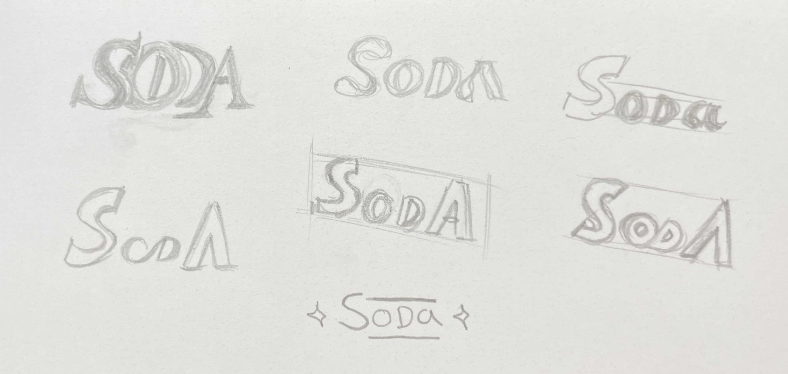 SODA
SODA
SODa
SODA
SODA
SODA
SODa